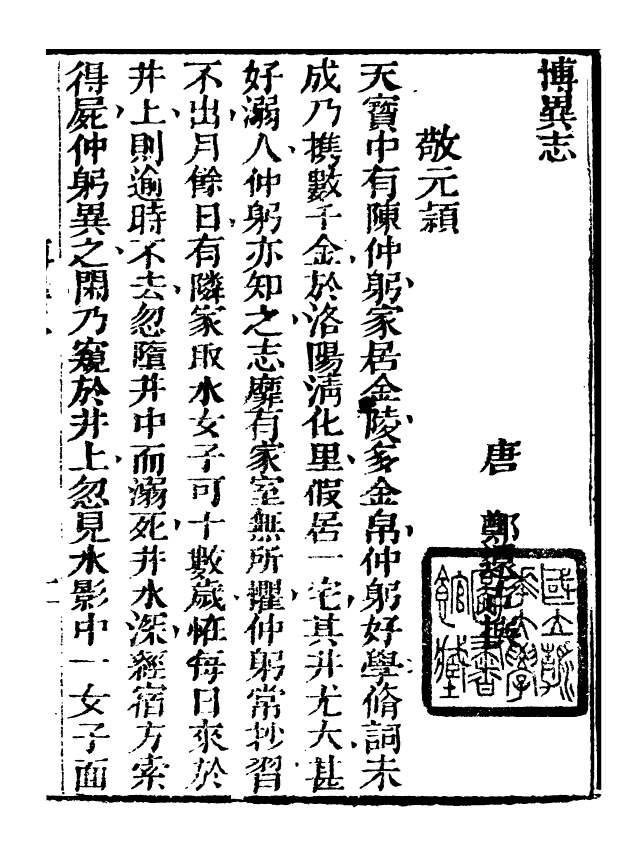 博異志
唐　鄭還古撰
敬元穎
天寶中有陳仲躬家居金陵多金帛仲躬好學脩詞未
成乃携數千金於洛陽清化里假居一宅其井尤大甚
好溺人仲躬亦知之志靡有家室無所懼仲躬常抄習
不出月餘日有隣家取水女子可十數歲怪每日來於
井上則逾時不去忽墮井中而溺死井水深經宿方索
得屍仲躬異之閑乃窺於井上忽見水影中一女子面
國立北
平圖書
館藏